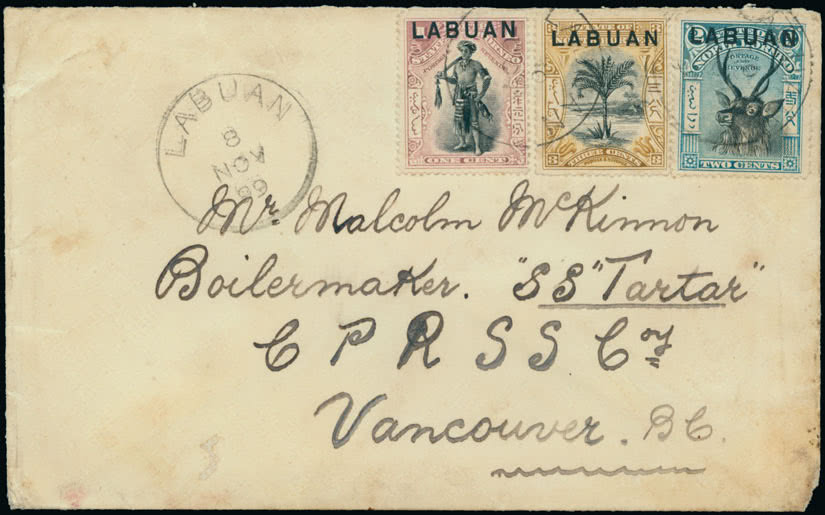 LABUAN
ONE CENT
LABUAN
THREE CENTS
LABUAN
POSTAGE
REVENUE
TWO CENTS
LABUAN
8
NOV
99
Mr. Malcolm McKinnon
Boilermaker. "SS" Tartar"
C P R S S Coy
Vancouver. B.C.